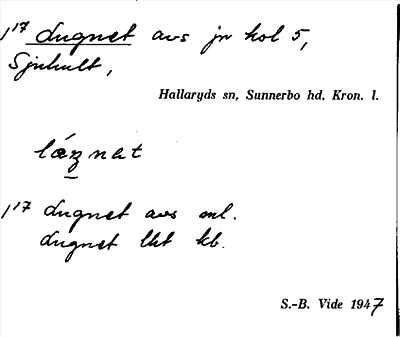 1¹⁷ dugnet avs jr kol 5,
Sjuhult,
Hallaryds sn, Sunnerbo hd, Kron. l.
1¹⁷ dugnet avs ml.
dugnet lkt kb.
S.-B. Vide 1947